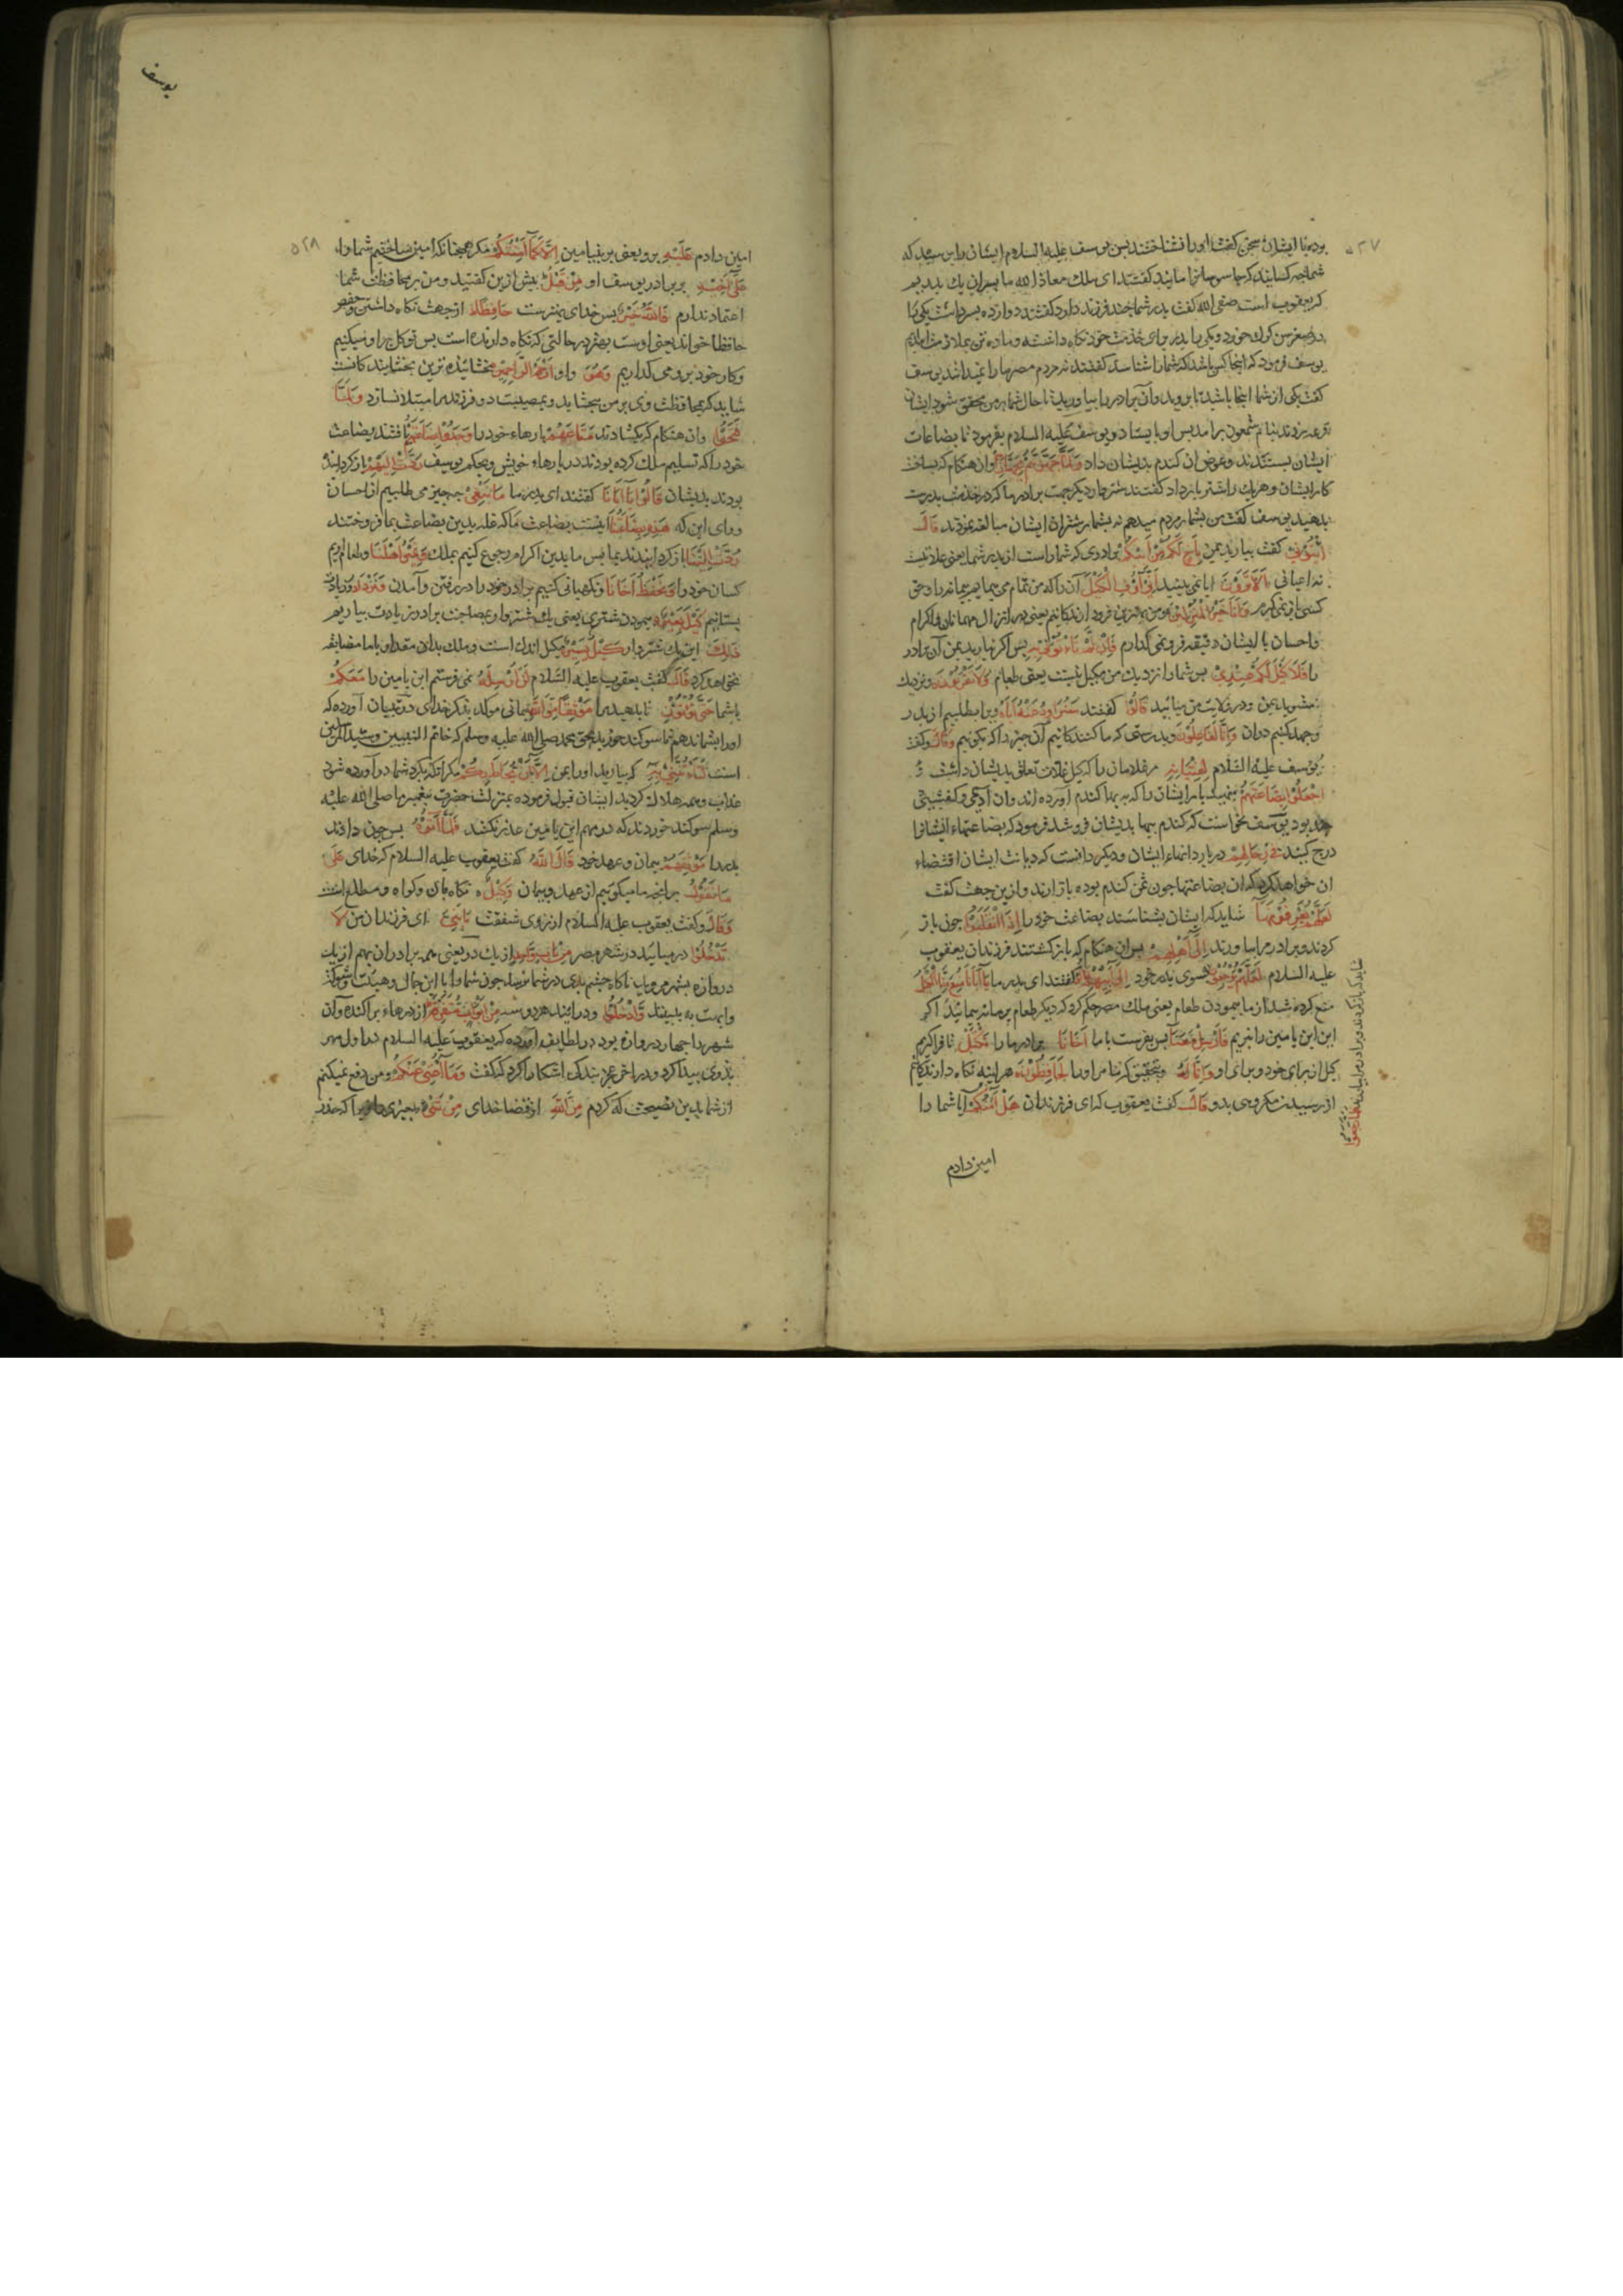 ۵۲۷
بوده با ایشان سخن کفت اورا نشناختند پس یوسف علیه السلام ایشان را پرسید که
شما چه کسانید که جاسوسانرا مانید کفتند ای ملک معاذ الله ما پسران یک پدریم
که یعقوب است صفی الله کفت پدر شما چند فرزند دارد کفتند دوازده پسر داشت یکی را
در صغر سن کرک خورد ویکی را پدر برای خدمت خود نکاه داشته وما ده تن بملازمت آمدیم
یوسف فرمود که اینجا کس باشد که شمارا شناسد کفتند نه مردم مصر مارا نمیدانند یوسف
کفت یکی از شما اینجا باشید تا بروید وآن برادر را بیاورید تا حال شما بر من محقق شود ایشان
قرعه زدند بنام شمعون برآمد پس او بایستاد ویوسف علیه السلام بفرمود تا بضاعات
ایشان بستدند وعوض آن کندم بدیشان داد وَلَمَّا جَهَّزَهُمْ بِجَهَازِهِمْ وآن هنکام که بساخت
کار ایشان وهر یک را شتر بار داد کفتند شتروار دیکر جهت برادر ما که در خدمت پدرست
بدهید یوسف کفت من بشمار مردم میدهم نه بشمار شتران ایشان مبالغه نمودند قَالَ
ائْتُونِي کفت بیارید بمن بِأَخٍ لَكُمْ مِنْ أَبِيكُمْ برادری که شماراست از پدر شما یعنی علاتیست
نه اعیانی أَلَا تَرَوْنَ ایا نمی بینید أَنِّي أُوفِي الْكَيْلَ آن را که من تمام می پیمایم پیمانه را وحق
کسی باز نمی کیرم وَأَنَا خَيْرُ الْمُنْزِلِينَ ومن بهترین فرود آرندکانم یعنی در انزال مهمانان واکرام
واحسان با ایشان دقیقه فرو نمی کذارم فَإِنْ لَمْ تَأْتُونِي بِهِ پس اکر نیارید بمن آن برادر
را فَلَا كَيْلَ لَكُمْ عِنْدِي پس شمارا نزدیک من مکیل نیست یعنی طعام وَلَا تَقْرَبُونِ ونزدیک
مشوید بمن ودر ولایت من میائید قَالُوا کفتند سَنُرَاوِدُ عَنْهُ أَبَاهُ وبیا بطلبیم از پدر
وجهد کنیم دران وَإِنَّا لَفَاعِلُونَ وبدرستی که ما کنندکانیم آن چیز را که میکویم وَقَالَ وکفت
یوسف علیه السلام لِفِتْيَانِهِ مر غلامان را که کیل غلات تعلق بدیشان داشت
اجْعَلُوا بِضَاعَتَهُمْ بنهید بار ایشان را که به بهاء کندم آورده اند وآن ادیمی وکفشی
چند بود یوسف نخواست که کندم ببها بدیشان فروشد فرمود که بضاعتهاء ایشانرا
درج کنید فِي رِحَالِهِمْ در باردانهاء ایشان ودیکر دانست که دیانت ایشان اقتضاء
آن خواهد کرد که ان بضاعتها چون ثمن کندم بوده باز آرند وازین جهت کفت
لَعَلَّهُمْ يَعْرِفُونَهَا شاید که ایشان بشناسند بضاعت خودرا إِذَا انْقَلَبُوا چون باز
کردند وبرادر مرا بیاورند إِلَى أَهْلِهِمْ پس آن هنکام که باز کشتند فرزندان یعقوب
علیه السلام لَعَلَّهُمْ يَرْجِعُونَ بسوی پدر خود إِلَى أَبِيهِمْ قَالُوا کفتند ای پدر ما يَا أَبَانَا مُنِعَ مِنَّا الْكَيْلُ
منع کرده شد از ما پیمودن طعام یعنی ملک مصر حکم کرد که دیکر طعام بر ما نه پیمائید اکر
ابن یامین را نبریم فَأَرْسِلْ مَعَنَا پس بفرست با ما أَخَانَا برادر مارا نَكْتَلْ تا فرا کیریم
کیل از برای خود وبرای او وَإِنَّا لَهُ وبتحقیق که ما مر اورا لَحَافِظُونَ هر اینه نکاه دارندکانیم
از رسیدن مکروهی بدو قَالَ کفت یعقوب که ای فرزندان هَلْ آمَنُكُمْ آیا شما را
شاید که باز کردند وبرادر مرا بیارند فَلَمَّا رَجَعُوا
امین دادم
یوسف
۵۲۸
امین دادم عَلَيْهِ برو یعنی بر بنیامین إِلَّا كَمَا أَمِنْتُكُمْ مکر همچنانکه امین ساختیم شمارا
عَلَى أَخِيهِ بر برادر یوسف او مِنْ قَبْلُ پیش ازین کفتید ومن بر محافظت شما
اعتماد ندارم فَاللَّهُ خَيْرٌ پس خدای بهترست حَافِظًا از جهت نکاه داشتن وحفص
حافظا خواند یعنی اوست بهتر در حالتی که نکاه دارنده است پس توکل برو میکنیم
وکار خود برو می کذاریم وَهُوَ واو أَرْحَمُ الرَّاحِمِينَ بخشاینده ترین بخشایندکانست
شاید که بمحافظت وی بر من ببخشاید وبمصیبت دو فرزند مرا مبتلا نسازد وَلَمَّا
فَتَحُوا وآن هنکام که بکشادند مَتَاعَهُمْ بارهاء خود را وَجَدُوا بِضَاعَتَهُمْ یافتند بضاعت
خود را که تسلیم ملک کرده بودند در بارهاء خویش وبحکم یوسف رُدَّتْ إِلَيْهِمْ باز کردانیده
بودند بدیشان قَالُوا يَا أَبَانَا کفتند ای پدر ما مَا نَبْغِي چه چیز می طلبیم از احسان
وورای این که هَذِهِ بِضَاعَتُنَا اینست بضاعت ما که غله بدین بضاعت بما فروختند
رُدَّتْ إِلَيْنَا باز کردانیدند بما پس ما بدین اکرام رجوع کنیم بملک وَنَمِيرُ أَهْلَنَا وطعام آریم
کسان خودرا وَنَحْفَظُ أَخَانَا ونکهبانی کنیم برادر خود را در رفتن وآمدن وَنَزْدَادُ وزیادت
بستانیم كَيْلَ بَعِيرٍ پیمودن شتری یعنی یک شتروار بمصاحبت برادر زیادت بیاریم
ذَلِكَ این یک شتروار كَيْلٌ يَسِيرٌ مکیل اندک است وملک بدان مقدار با ما مضایقه
نخواهد کرد قَالَ کفت یعقوب علیه السلام لَنْ أُرْسِلَهُ نمی فرستم ابن یامین را مَعَكُمْ
با شما حَتَّى تُؤْتُونِ تا بدهید مرا مَوْثِقًا مِنَ اللَّهِ پیمانی موکد بذکر خدای در تبیان آورده که
اورا بشما ندهم تا سوکند خورید بحق محمد صلی الله علیه وسلم که خاتم النبیین وسید المرسلین
است لَتَأْتُنَّنِي بِهِ که بیارید اورا بمن إِلَّا أَنْ يُحَاطَ بِكُمْ مکر آنکه بکرد شما در آورده شود
عذاب وهمه هلاک کردید ایشان قبول فرموده بمنزلت حضرت پیغمبر ما صلی الله علیه
وسلم سوکند خوردند که در مهم ابن یامین عذر نکنند فَلَمَّا آتَوْهُ پس چون دادند
پدر را مَوْثِقَهُمْ پیمان وعهد خود قَالَ اللَّهُ کفت یعقوب علیه السلام که خدای عَلَى
مَا نَقُولُ بر آنچه ما میکوییم از عهد وپیمان وَكِيلٌ نکاه بان وکواه ومطلع است
وَقَالَ وکفت یعقوب علیه السلام از روی شفقت يَا بَنِيَّ ای فرزندان من لَا
تَدْخُلُوا در میایید در شهر مصر مِنْ بَابٍ وَاحِدٍ از یک در یعنی همه برادران بهم از یک
دروازه بشهر مروید تا ناکاه چشم بدی در شما نرسد چون شمارا با این جمال وهیئت وشوکت
وابهت به بینند وَادْخُلُوا ودر ائید هر دو سه مِنْ أَبْوَابٍ مُتَفَرِّقَةٍ از درهاء پراکنده وآن
شهر را چهار دروازه بود در لطایف آورده که یعقوب علیه السلام در اول مهر
پدری پیدا کرد ودر آخر عجز بندکی اشکارا کرد که کفت وَمَا أُغْنِي عَنْكُمْ ومن دفع نمیکنم
از شما بدین نصیحت که کردم مِنَ اللَّهِ از قضاء خدای مِنْ شَيْءٍ چیزی را زیرا که حذر